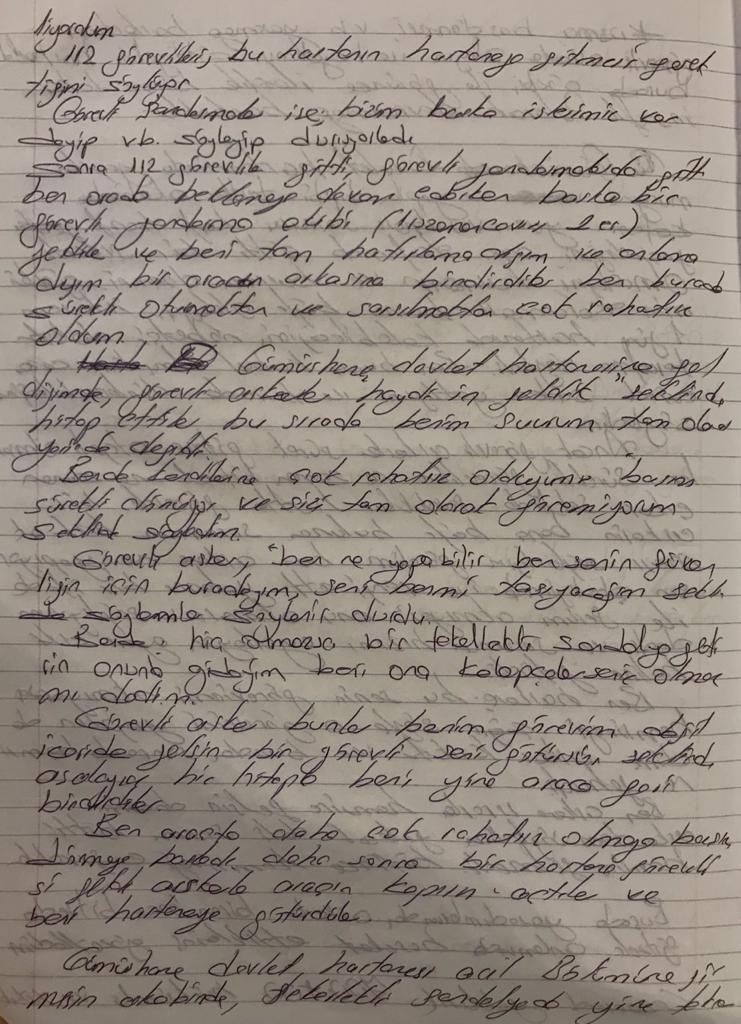 liyordum
112 görevlileri, bu hastanın hastaneye gitmesi gerek
tiğini söylüyor
Görevli Jandarmada ise, bizim başka isteimiz var
deyip vb. söyleyip duruyorlardı
Sonra 112 görevlileri gitti, görevli jandarmalarda gitti
ben orada beklemeye devam ederken başka bir
görevli jandarma ekibi
geldile ve beni tam hatırlamadığım ve anlama
dığım bir aracın arkasına bindirdiler ben burada
sürekli oturmaktan ve sarsılmaktan çok rahatsız
oldum.
Gümüşhane devlet hastanesine gel
diğimde, görevli askerler haydi in geldik" şeklinde,
hitap ettiler bu sırada benim şuurum tam olarak
yerinde değildi.
Bende kendilerine çok rahatsız olduğumu başım
sürekli dönüyor ve sizi tam olarak göremiyorum
şeklinde söyledim.
Görevli asker, "ben ne yapabilir ben senin güven
liğin için buradayım, seni benmi taşıyacağım şekli
söylemle söylenir durdu.
Bende hiç olmazsa bir tekellekli sandalye geti
rin onunla gideyim beni ona kelepçelerseniz olmaz
mı dedim.
Görevli asker bunlar benim görevim değil
içeride gelsin bir görevli seni götürsün şeklinde,
aşalayıcı bir hitapla beni yine araca geri
bindirdiler.
Ben araçta daha çok rahatsız olmaya başla
daha sonra bir hastane görevli
si geldi askerle aracın kapısını açtılar ve
beni hastaneye götürdüler.
Gümüşhane devlet, hastanesi acil Bölümine gir
mesin akabinde, tekerlekli sandelyede yine